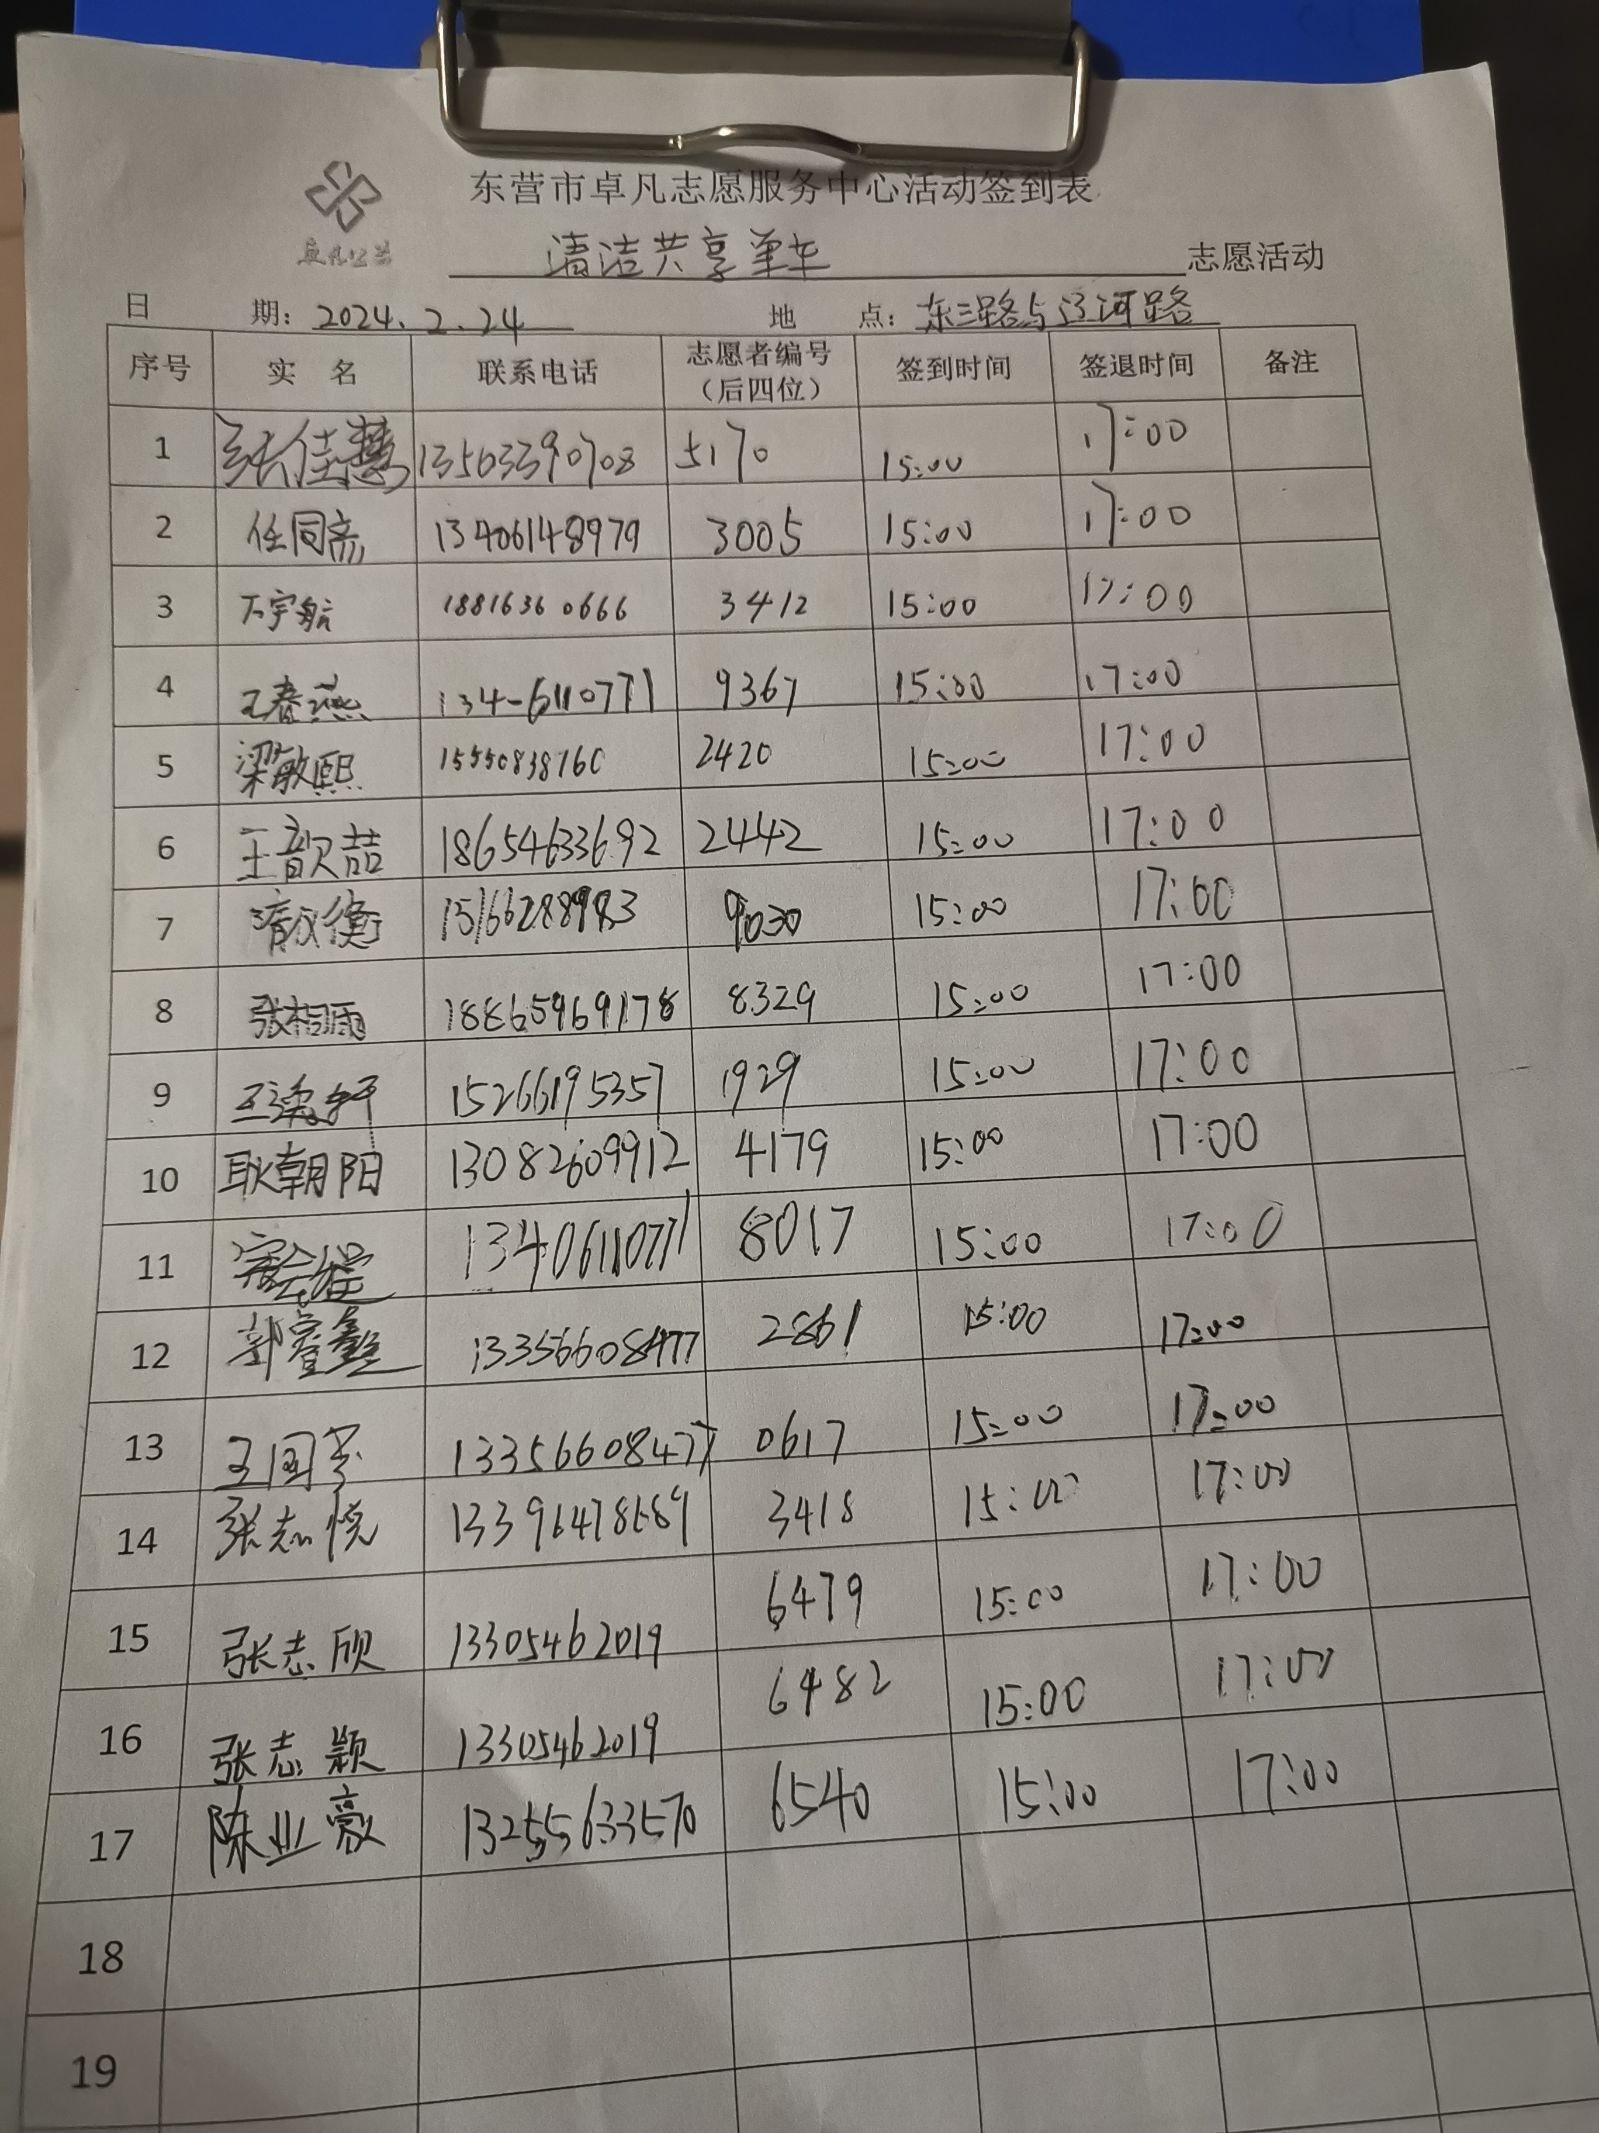 东营市卓凡志愿服务中心活动签到表
卓凡公益
清洁共享单车 志愿活动
日 期：2024.2.24 地 点：东三路与辽河路
序号 实 名 联系电话 志愿者编号（后四位） 签到时间 签退时间 备注
1 张佳慧 13563390708 5170 15:00 17:00
2 任同斋 13406148979 3005 15:00 17:00
3 宇航 18816360666 3412 15:00 17:00
4 王春燕 134-6110771 9367 15:00 17:00
5 梁敏熙 15550838760 2420 15:00 17:00
6 王歆喆 18654633692 2442 15:00 17:00
7 衡 9030 15:00 17:00
8 张相雨 18865969178 8329 15:00 17:00
9 王 15266195357 1929 15:00 17:00
10 耿朝阳 13082609912 4179 15:00 17:00
11 13406110771 8017 15:00 17:00
12 郭睿鑫 133566608477 2861 15:00 17:00
13 王国 13356608477 0617 15:00 17:00
14 张志悦 13396478689 3418 15:00 17:00
15 张志欣 13305462019 6479 15:00 17:00
16 张志颖 13305462019 6482 15:00 17:00
17 陈业豪 13255633570 6540 15:00 17:00
18
19